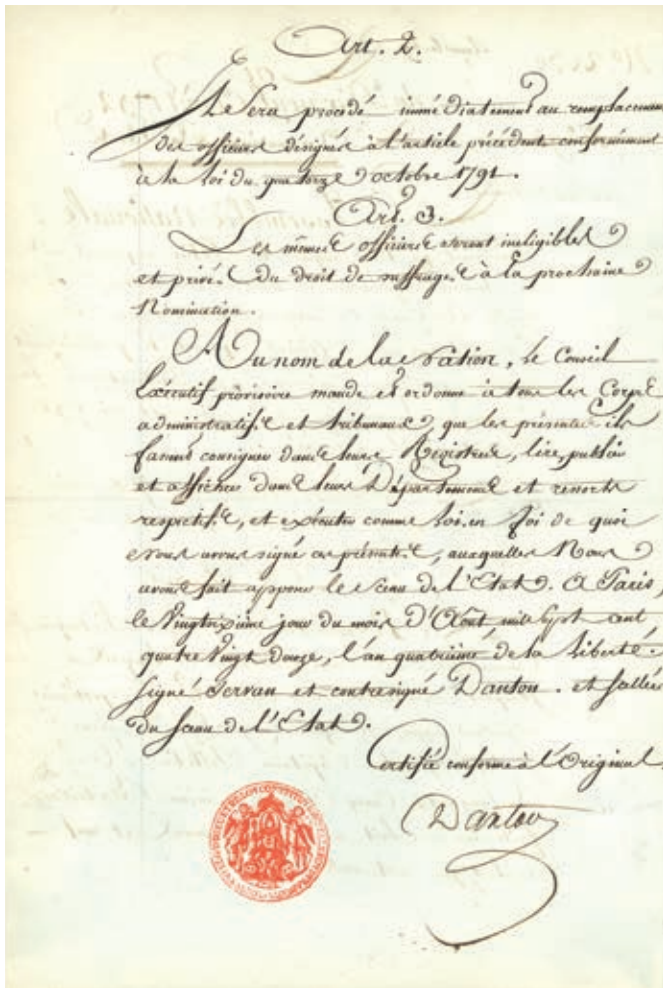 Art. 2.
Il Sera procédé immédiatement au remplacement
des officiers désignés à l'article précédent conformément
à la Loi du quatorze octobre 1791.
Art. 3.
Les mêmes officiers seront inéligibles
et privés du droit de suffrage à la prochaine
Nomination.
Au nom de la Nation, le Conseil
Exécutif provisoire mande et ordonne à tous les Corps
administratifs et tribunaux, que les présentes ils
fassent consigner dans leurs Registres, lire, publier
et afficher dans leurs Départemens et ressorts
respectifs, et exécuter comme Loi. en foi de quoi
Nous avons signé ces présentes, auxquelles Nous
avons fait apposer le sceau de l'Etat. A Paris,
le Vingtsixième jour du mois d'Août, mil Sept cent
quatre Vingt douze, l'an quatrième de la liberté.
Signé Servan et contresigné Danton. et scellée
du Sceau de l'Etat.
Certifié conforme à l'Original
Danton